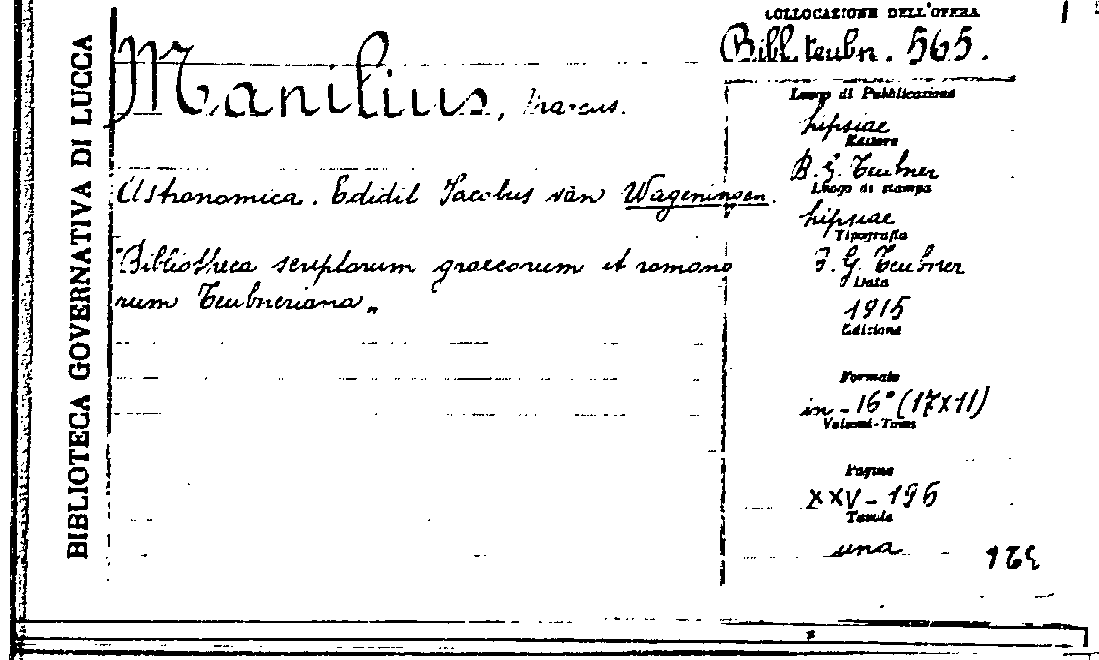 BIBLIOTECA GOVERNATIVA DI LUCCA
Manilius, Marcus.
Astronomica. Edidit Jacobus van Wageningen.
"Bibliotheca scriptorum graecorum et romano
rum Teubneriana„
COLLOCAZIONE DELL'OPERA
Bibl. teubn. 565.
Luogo di Pubblicazione
Lipsiae
Editore
B. G. Teubner
Luogo di stampa
Lipsiae
Tipografia
B. G. Teubner
Data
1915
Edizione
Formato
in-16° (17x11)
Volumi-Tomi
Pagine
XXV-196
Tavole
una